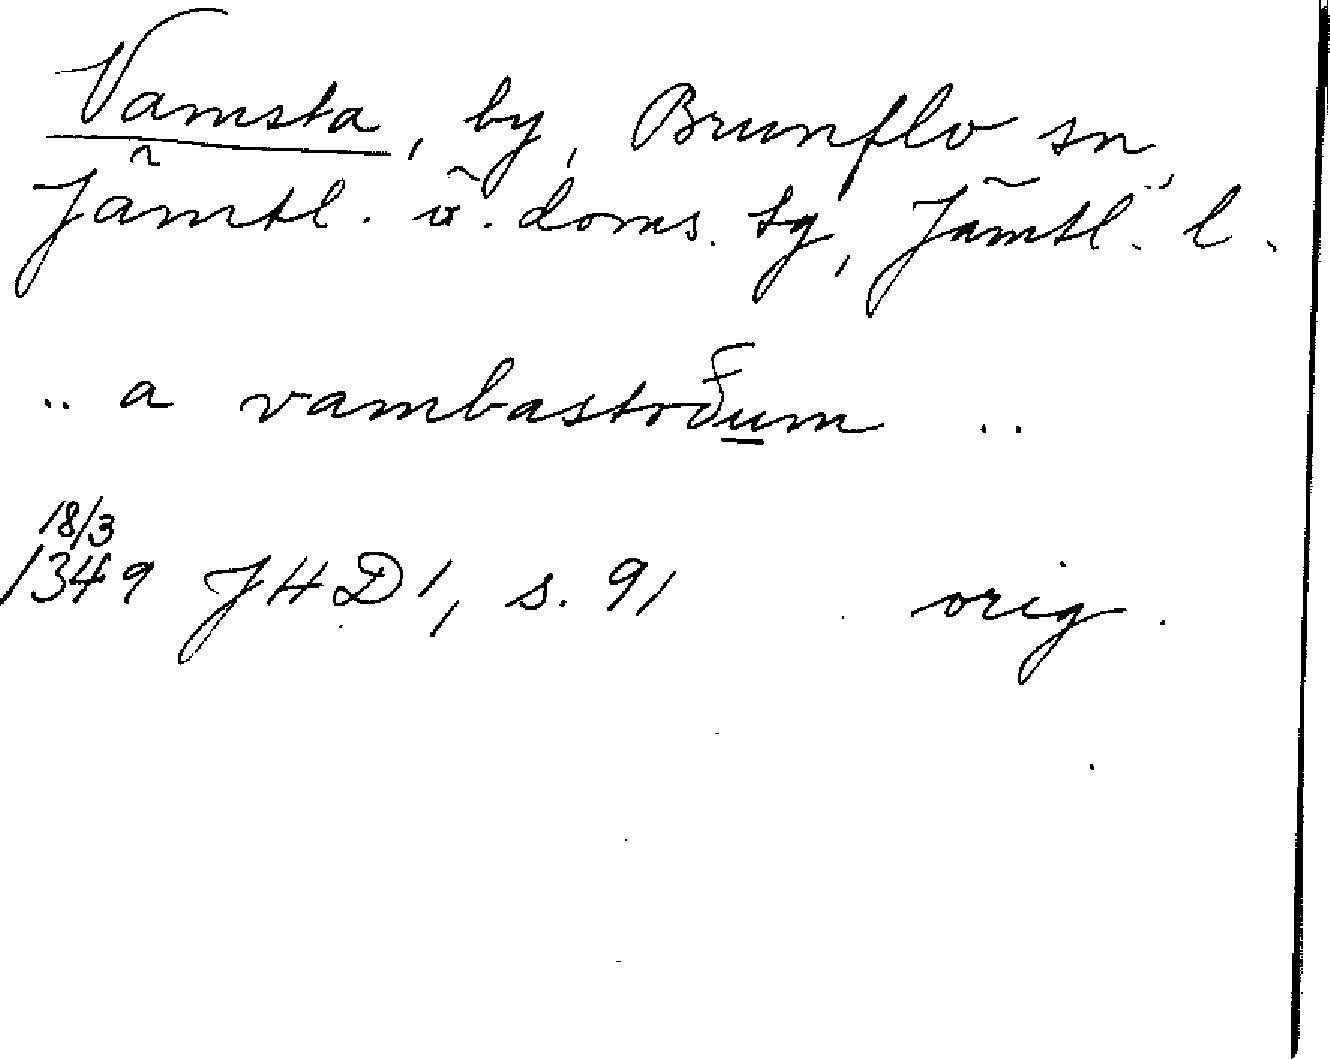 Vamsta, by, Brunflo sn,
Jämtl. ö. doms. tg, Jämtl. l.
.. a vambastoðum ..
18/3
1349 JHD 1, s. 91 orig.